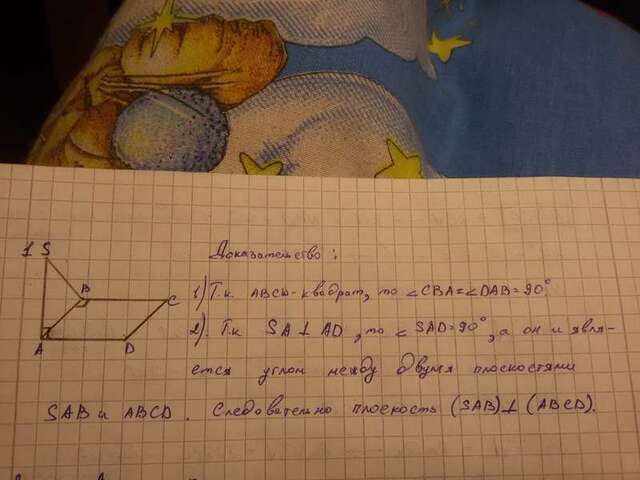 1 S
Доказательство:
B
C
A
D
1) Т.к. ABCD-квадрат, то ∠CBA=∠DAB=90°
2) Т.к SA⊥AD, то ∠SAD=90°, а он и явля-
ется углом между двумя плоскостями
SAB и ABCD. Следовательно плоскость (SAB)⊥(ABCD).